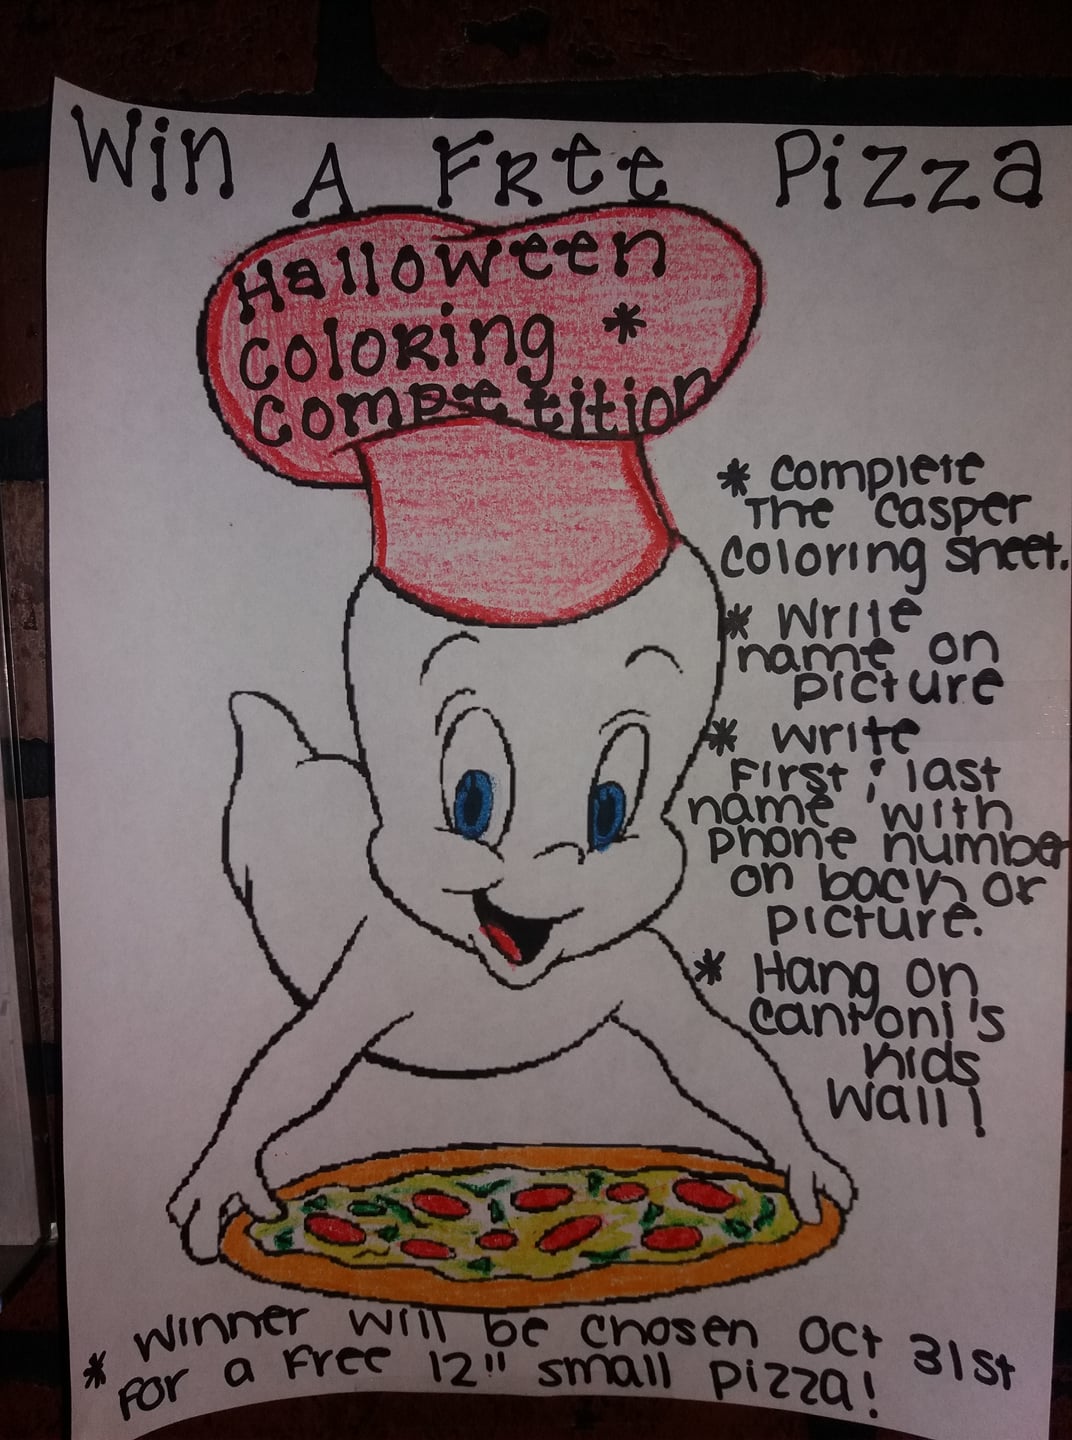 Win A Free Pizza
Halloween
Coloring *
Competition
* Complete
The Casper
Coloring sheet.
* Write
name on
picture
* Write
First & last
name with
phone number
on back or
picture.
* Hang on
Cantoni's
Kids
Wall!
Winner will be chosen Oct 31st
* For a Free 12" small pizza!